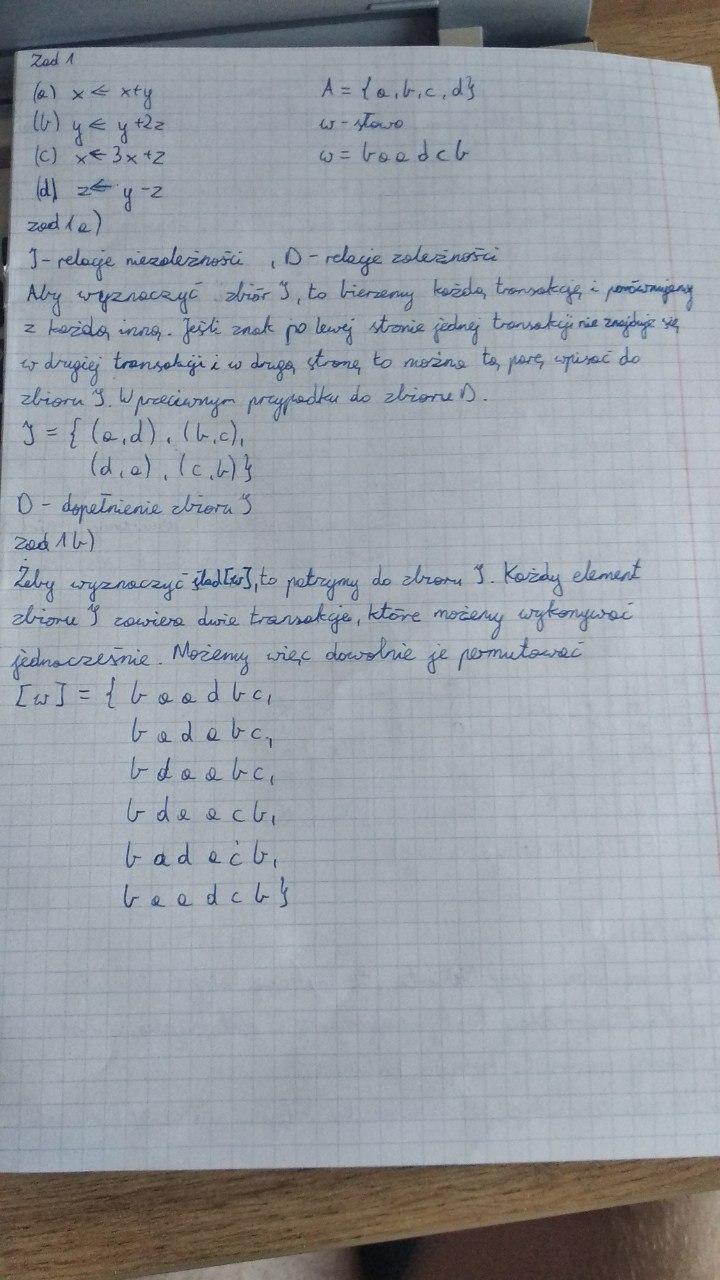 Zad 1
(a) x ← x+y A = {a,b,c,d}
(b) y ← y+2z w - słowo
(c) x ← 3x+z w = baadcb
(d) z ← y-z
zad 1a)
I - relacje niezależności, D - relacje zależności
Aby wyznaczyć zbiór I, to bierzemy każdą transakcję i porównujemy
z każdą inną. Jeśli znak po lewej stronie jednej transakcji nie znajduje się
w drugiej transakcji i w drugą stronę to można tą parę wpisać do
zbioru I. W przeciwnym przypadku do zbioru D.
I = { (a,d), (b,c),
(d,a), (c,b)}
D - dopełnienie zbioru I
zad 1b)
Żeby wyznaczyć ślad [w], to patrzymy do zbioru I. Każdy element
zbioru I zawiera dwie transakcje, które możemy wykonywać
jednocześnie. Możemy więc dowolnie je permutować
[w] = { b a a d b c,
b a d a b c,
b d a a b c,
b d a a c b,
b a d a c b,
b a a d c b}